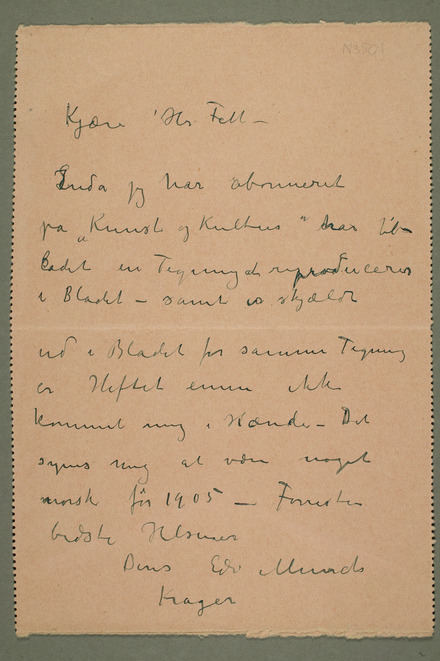 N3501
Kjære Hr Fett –
Enda jeg har abonneret
på „Kunst og Kultur" har til-
ladt en Tegning at reproduceres
i Bladet – samt skjældt
ud i Bladet for samme Tegning
er Heftet ennu ikke
kommet mig i Hænde – Det
synes mig at være noget
norsk før 1905 – Forresten
bedste Hilsner
Deres Edv Munch
Kragerø